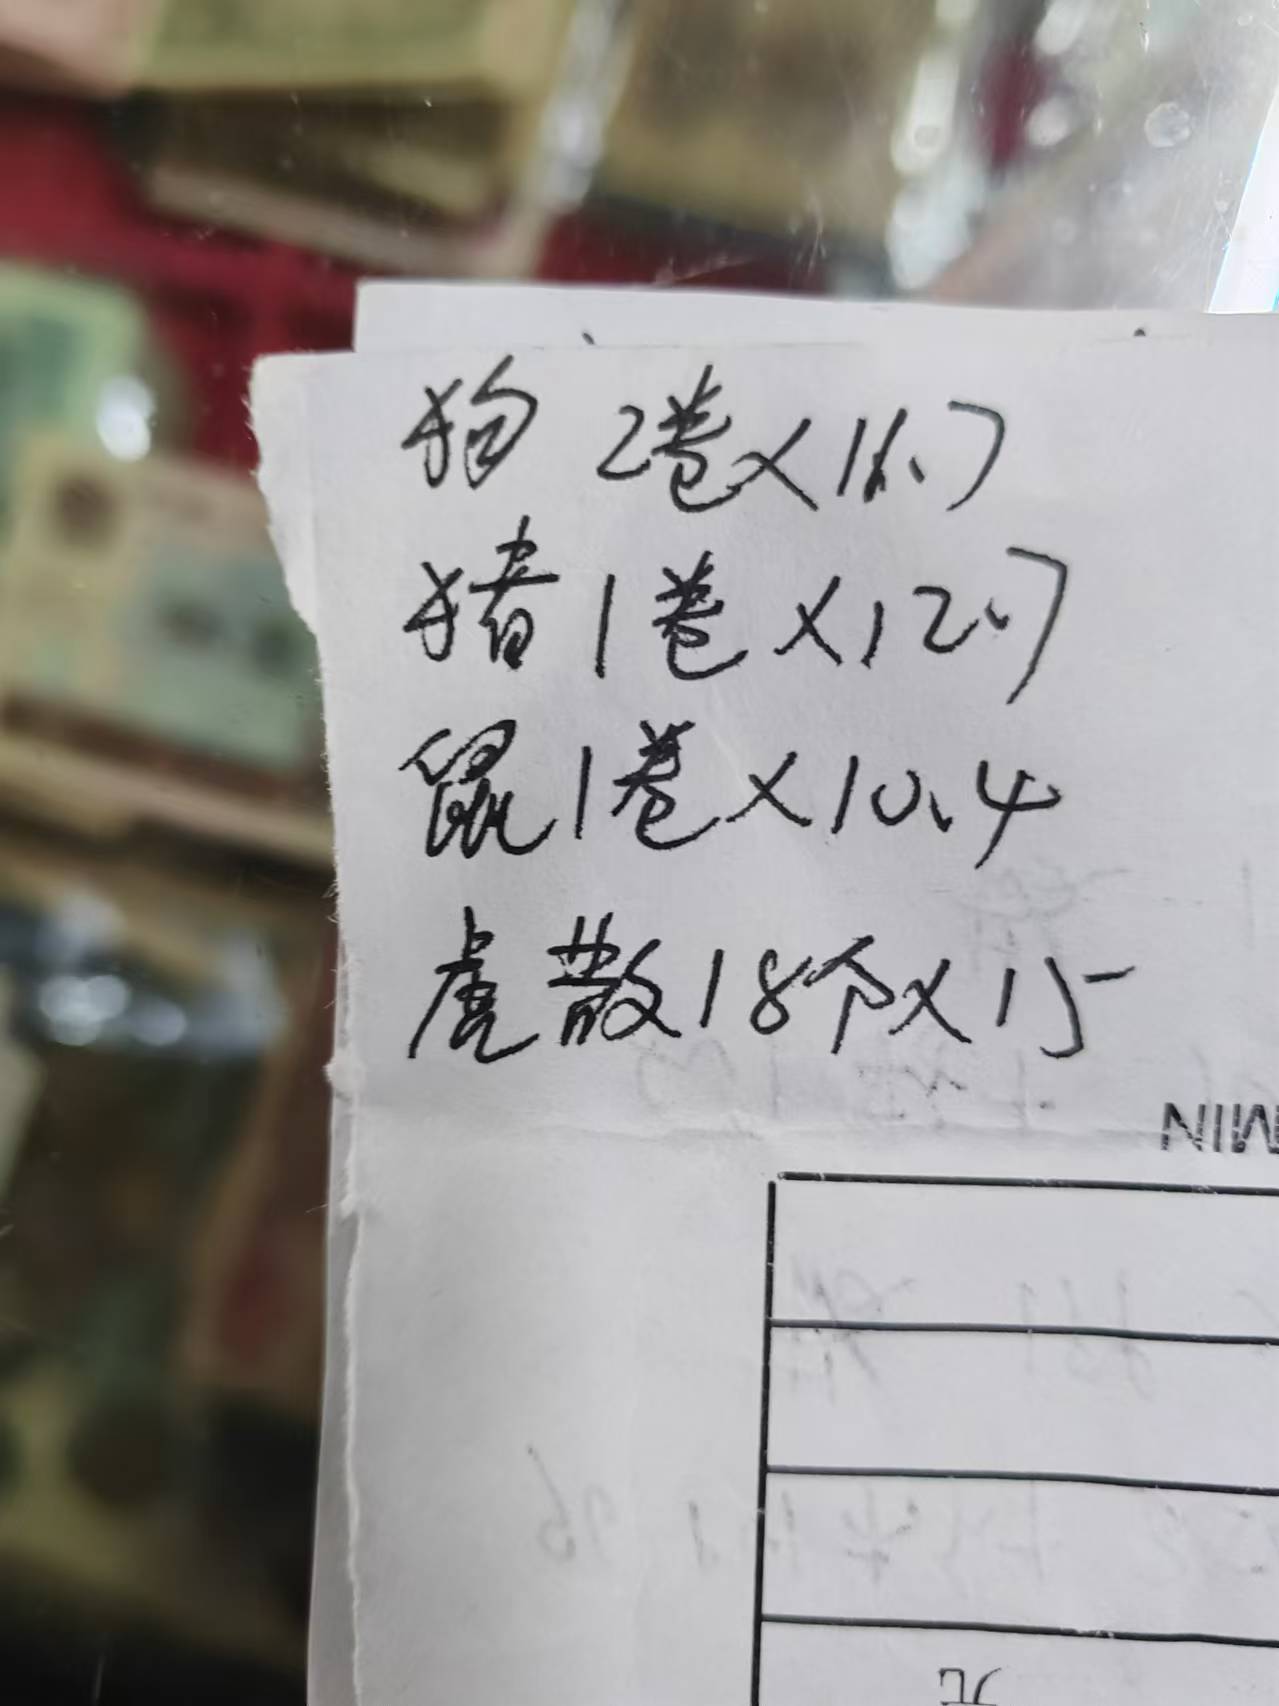 狗 2卷×16.7
猪1卷×12.7
鼠1卷×10.4
虎散18个×15
MIN
元